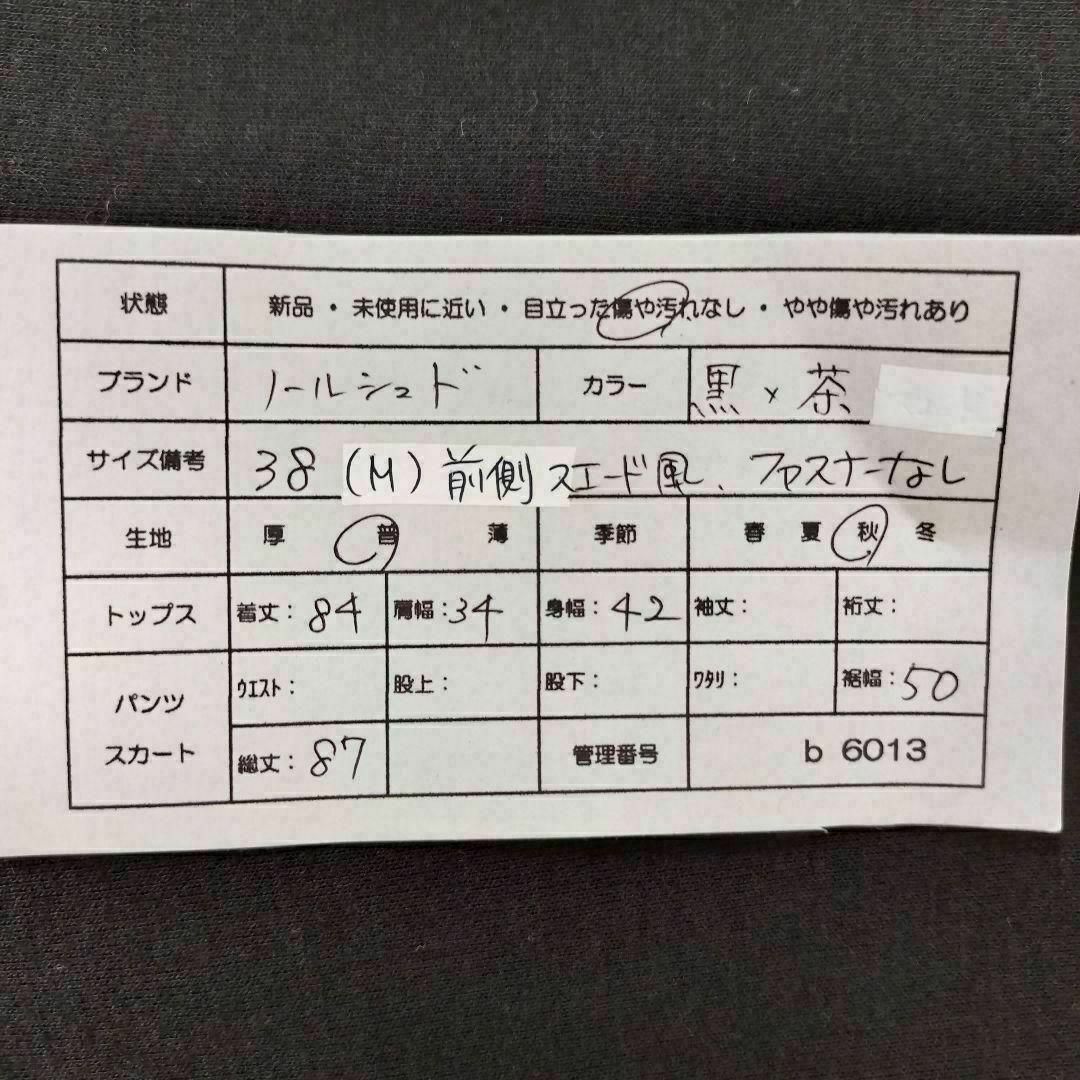 状態 新品・未使用に近い・目立った傷や汚れなし・やや傷や汚れあり
ブランド ノールシュド カラー 黒×茶
サイズ備考 38 (M) 前側スエード風、ファスナーなし
生地 厚 普 薄 季節 春 夏 秋 冬
トップス 着丈：84 肩幅：34 身幅：42 袖丈： 裄丈：
パンツ ｳｴｽﾄ： 股上： 股下： ﾜﾀﾘ： 裾幅：50
スカート 総丈：87 管理番号 b 6013